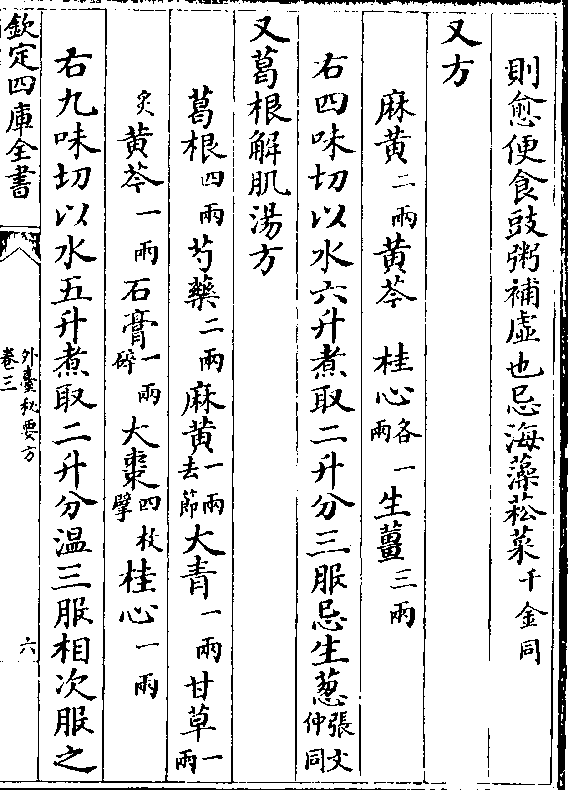 則愈便食豉粥補虛也忌海藻菘菜千金同
又方
麻黄二兩黄芩 桂心各一兩生薑三兩
右四味切以水六升煮取二升分三服忌生葱張文仲同
又葛根解肌湯方
葛根四兩芍藥二兩麻黄一兩去節大青一兩甘草一兩
炙黄芩一兩石膏一兩碎大棗四枚擘桂心一兩
右九味切以水五升煮取二升分温三服相次服之
欽定四庫全書
外臺秘要方
卷三
六